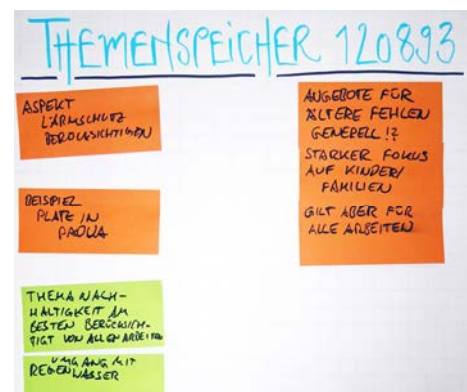 THEMENSPEICHER 120893
ASPEKT
LÄRMSCHUTZ
BERÜCKSICHTIGEN
BEISPIEL
PLATZ IN
PADUA
THEMA NACH-
HALTIGKEIT AM
BESTEN BERÜCKSICH-
TIGT VON ALLEN ARBEITEN
UMGANG MIT
REGENWASSER
ANGEBOTE FÜR
ÄLTERE FEHLEN
GENERELL !?
STARKER FOKUS
AUF KINDER/
FAMILIEN
GILT ABER FÜR
ALLE ARBEITEN